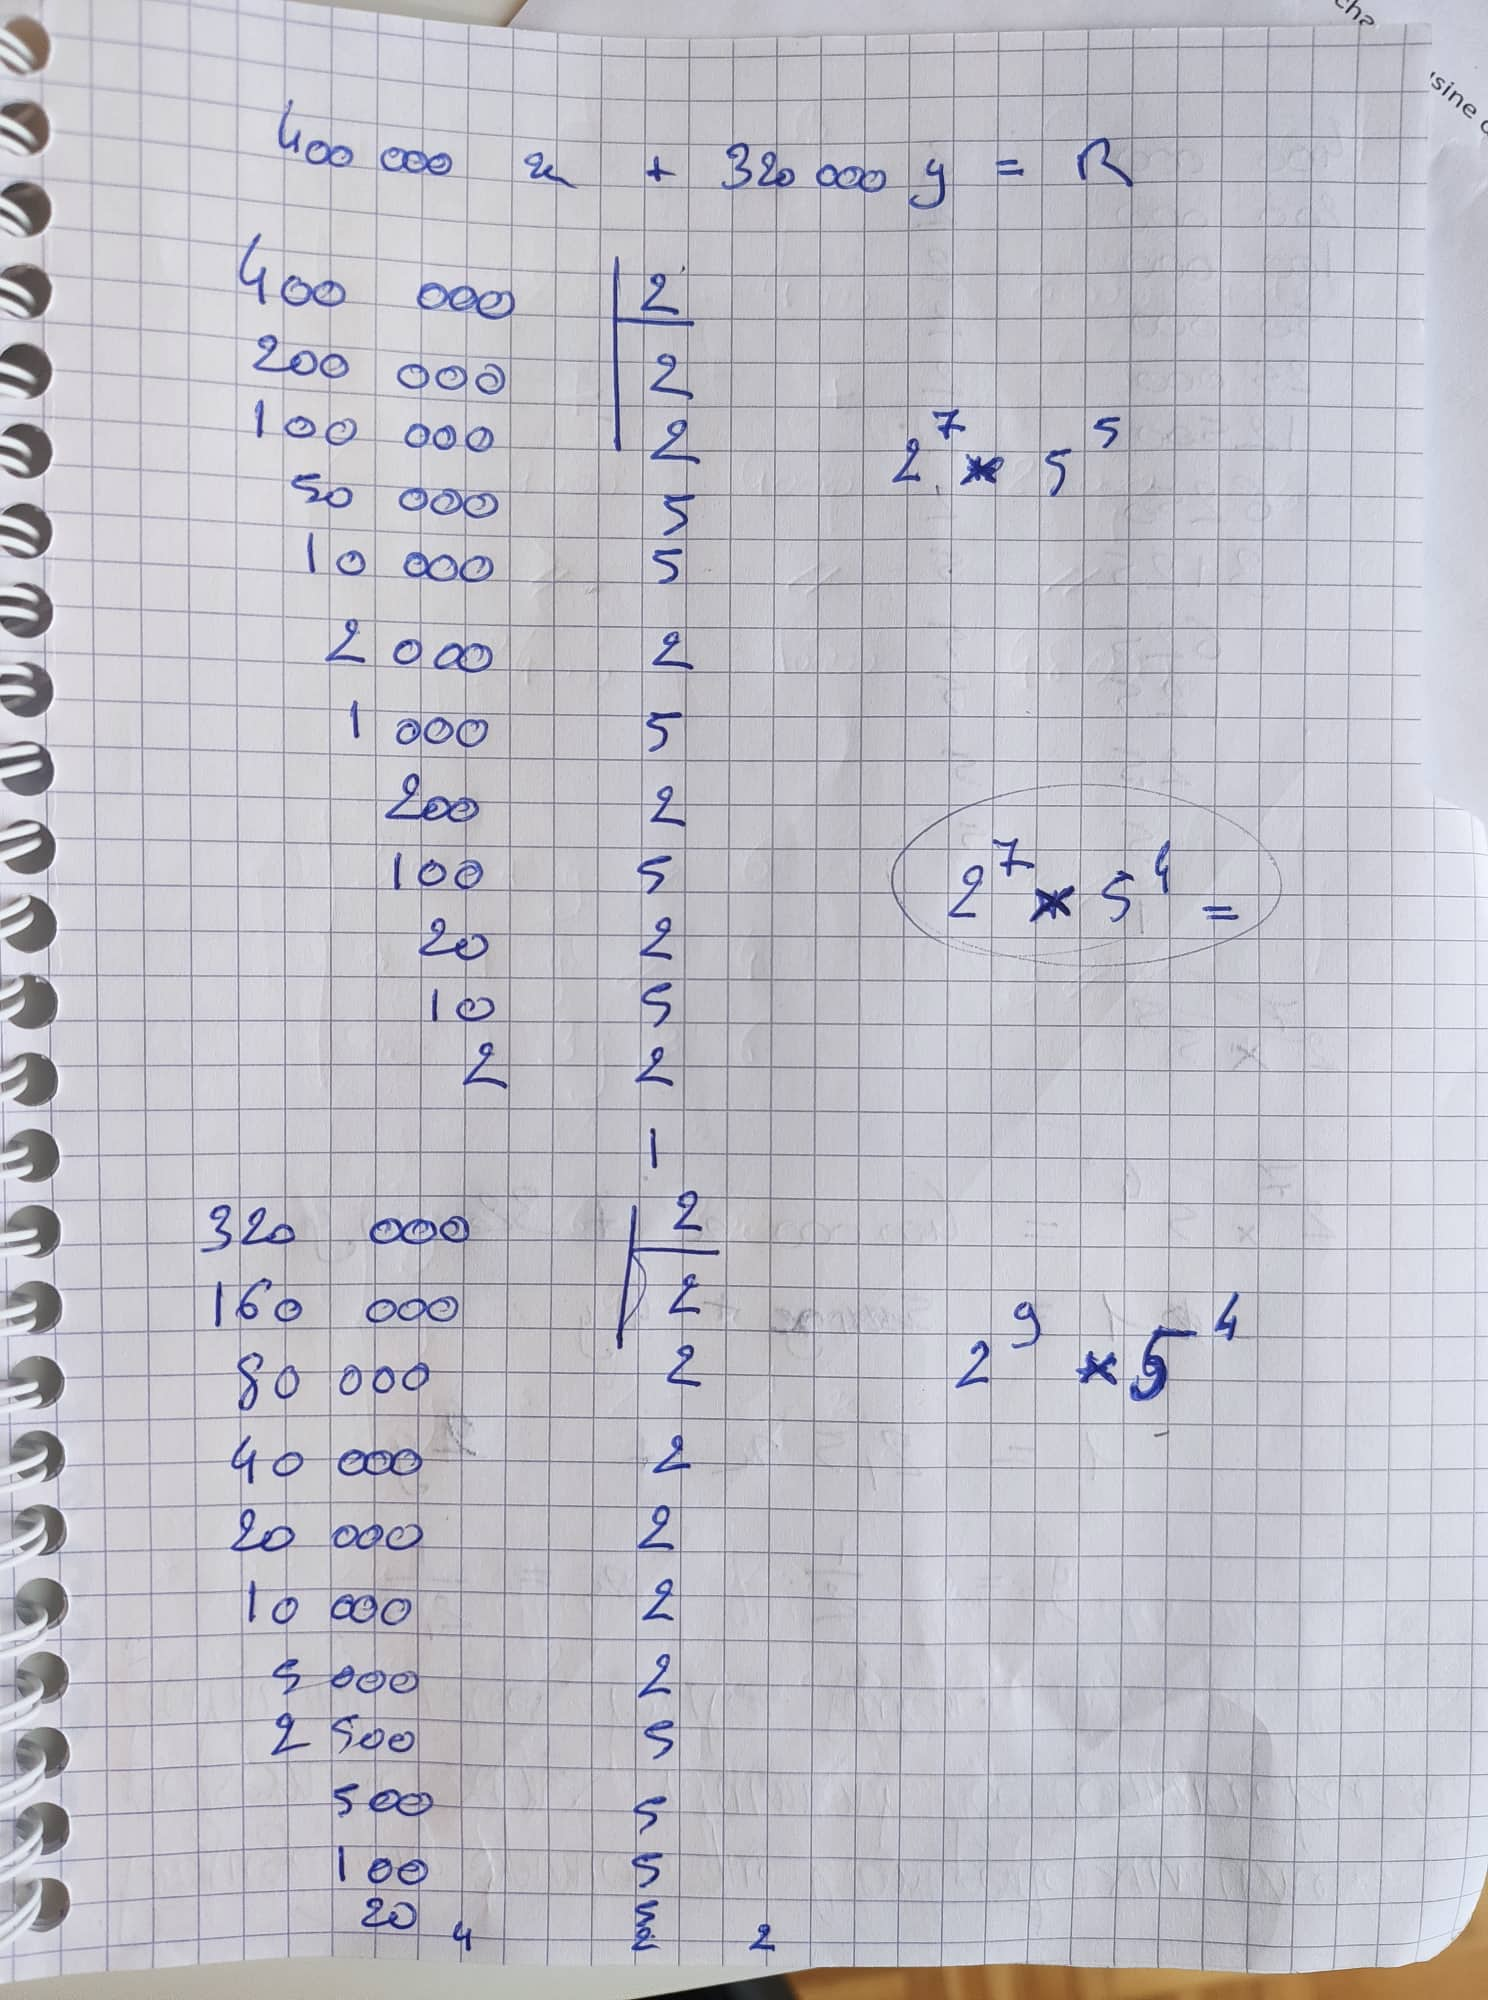 cha
usine
400 000 x + 320 000 y = R
400 000 | 2
200 000 | 2
100 000 | 2
2^7 * 5^5
50 000 5
10 000 5
2 000 2
1 000 5
200 2
100 5
2^7 * 5^4 =
20 2
10 5
2 2
1
320 000 | 2
160 000 | 2
80 000 2
2^9 * 5^4
40 000 2
20 000 2
10 000 2
5 000 2
2 500 5
500 5
100 5
20 5
4 2 2